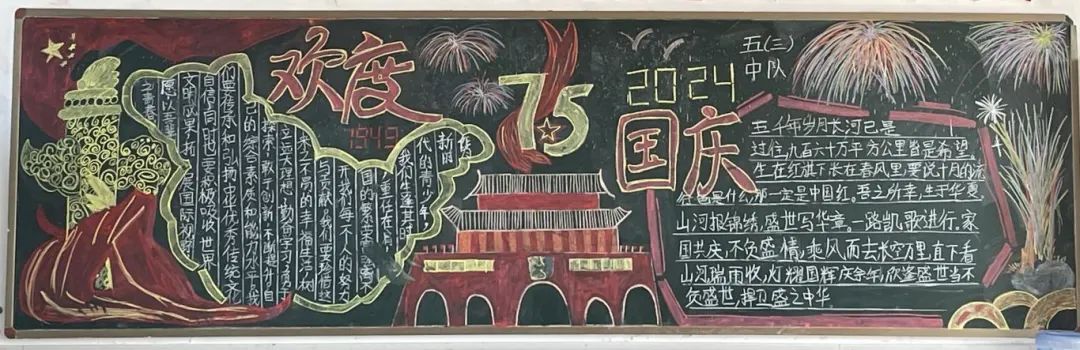 欢度
1949
75
2024
国庆
五(三)
中队
新时
代的青少年
我们生逢其时
重任在肩
国的繁荣富强离不
开我们每一个人的努力
与贡献我们要珍惜这
来之不易的幸福生活树
立远大理想勤奋学习勇于
探索敢于创新不断提升自
己的综合素质和能力水平我
们要传承和弘扬中华优秀传统文化
自信同时也要积极吸收世界
文明成果拓展国际视野
愿以吾辈
之青春
五千年岁月长河已是
过往,九百六十万平方公里皆是希望
生在红旗下长在春风里,要说十月的流
行色是什么,那一定是中国红。吾之所幸,生于华夏
山河披锦绣,盛世写华章。一路凯歌进行,家
国共庆,不负盛情,乘风而去长空万里直下看
山河瑞雨收,灯耀国辉庆余年,欣逢盛世当不
负盛世,捍卫盛之中华